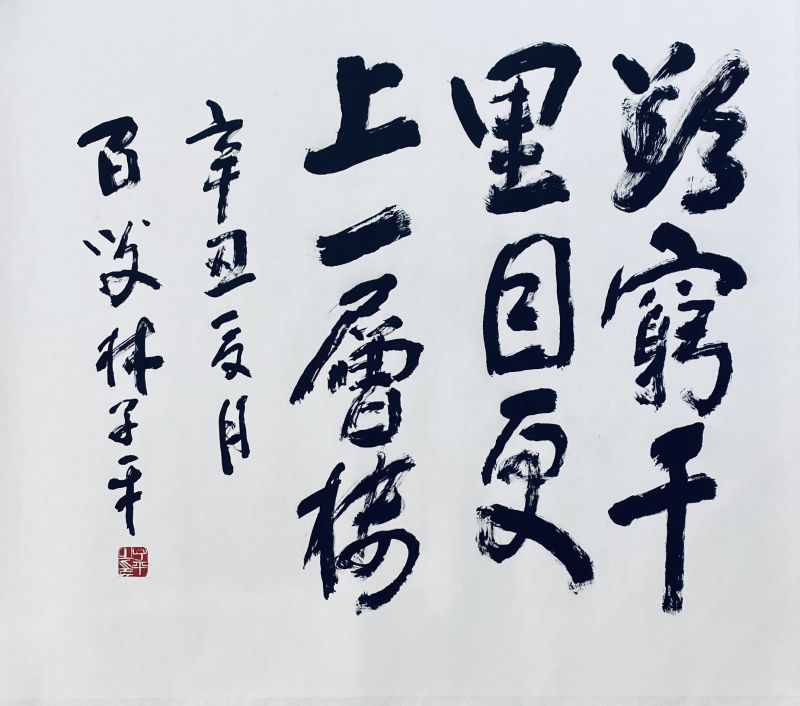 欲窮千
里目更
上一層樓
辛丑夏月
百 林子平